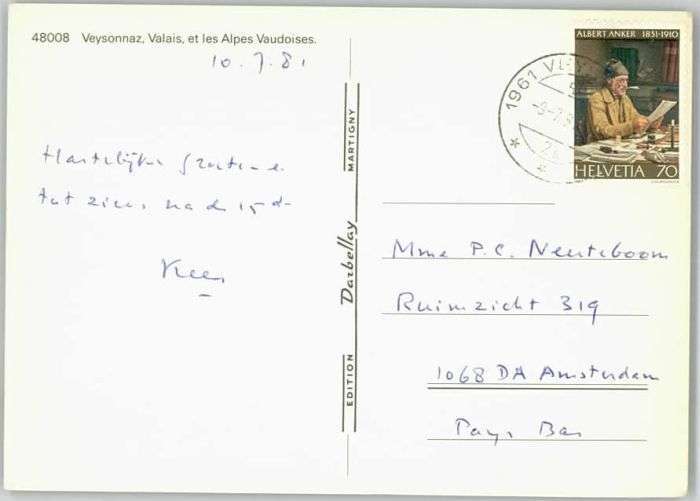 48008 Veysonnaz, Valais, et les Alpes Vaudoises.
10.7.81
Hartelijke groeten
tot ziens na d 15d
Kees
MARTIGNY
Darbellay
EDITION
ALBERT ANKER 1831-1910
HELVETIA 70
1961
-9-7
Mme P.C. Neuteboom
Ruimzicht 319
1068 DA Amsterdam
Pays Bas